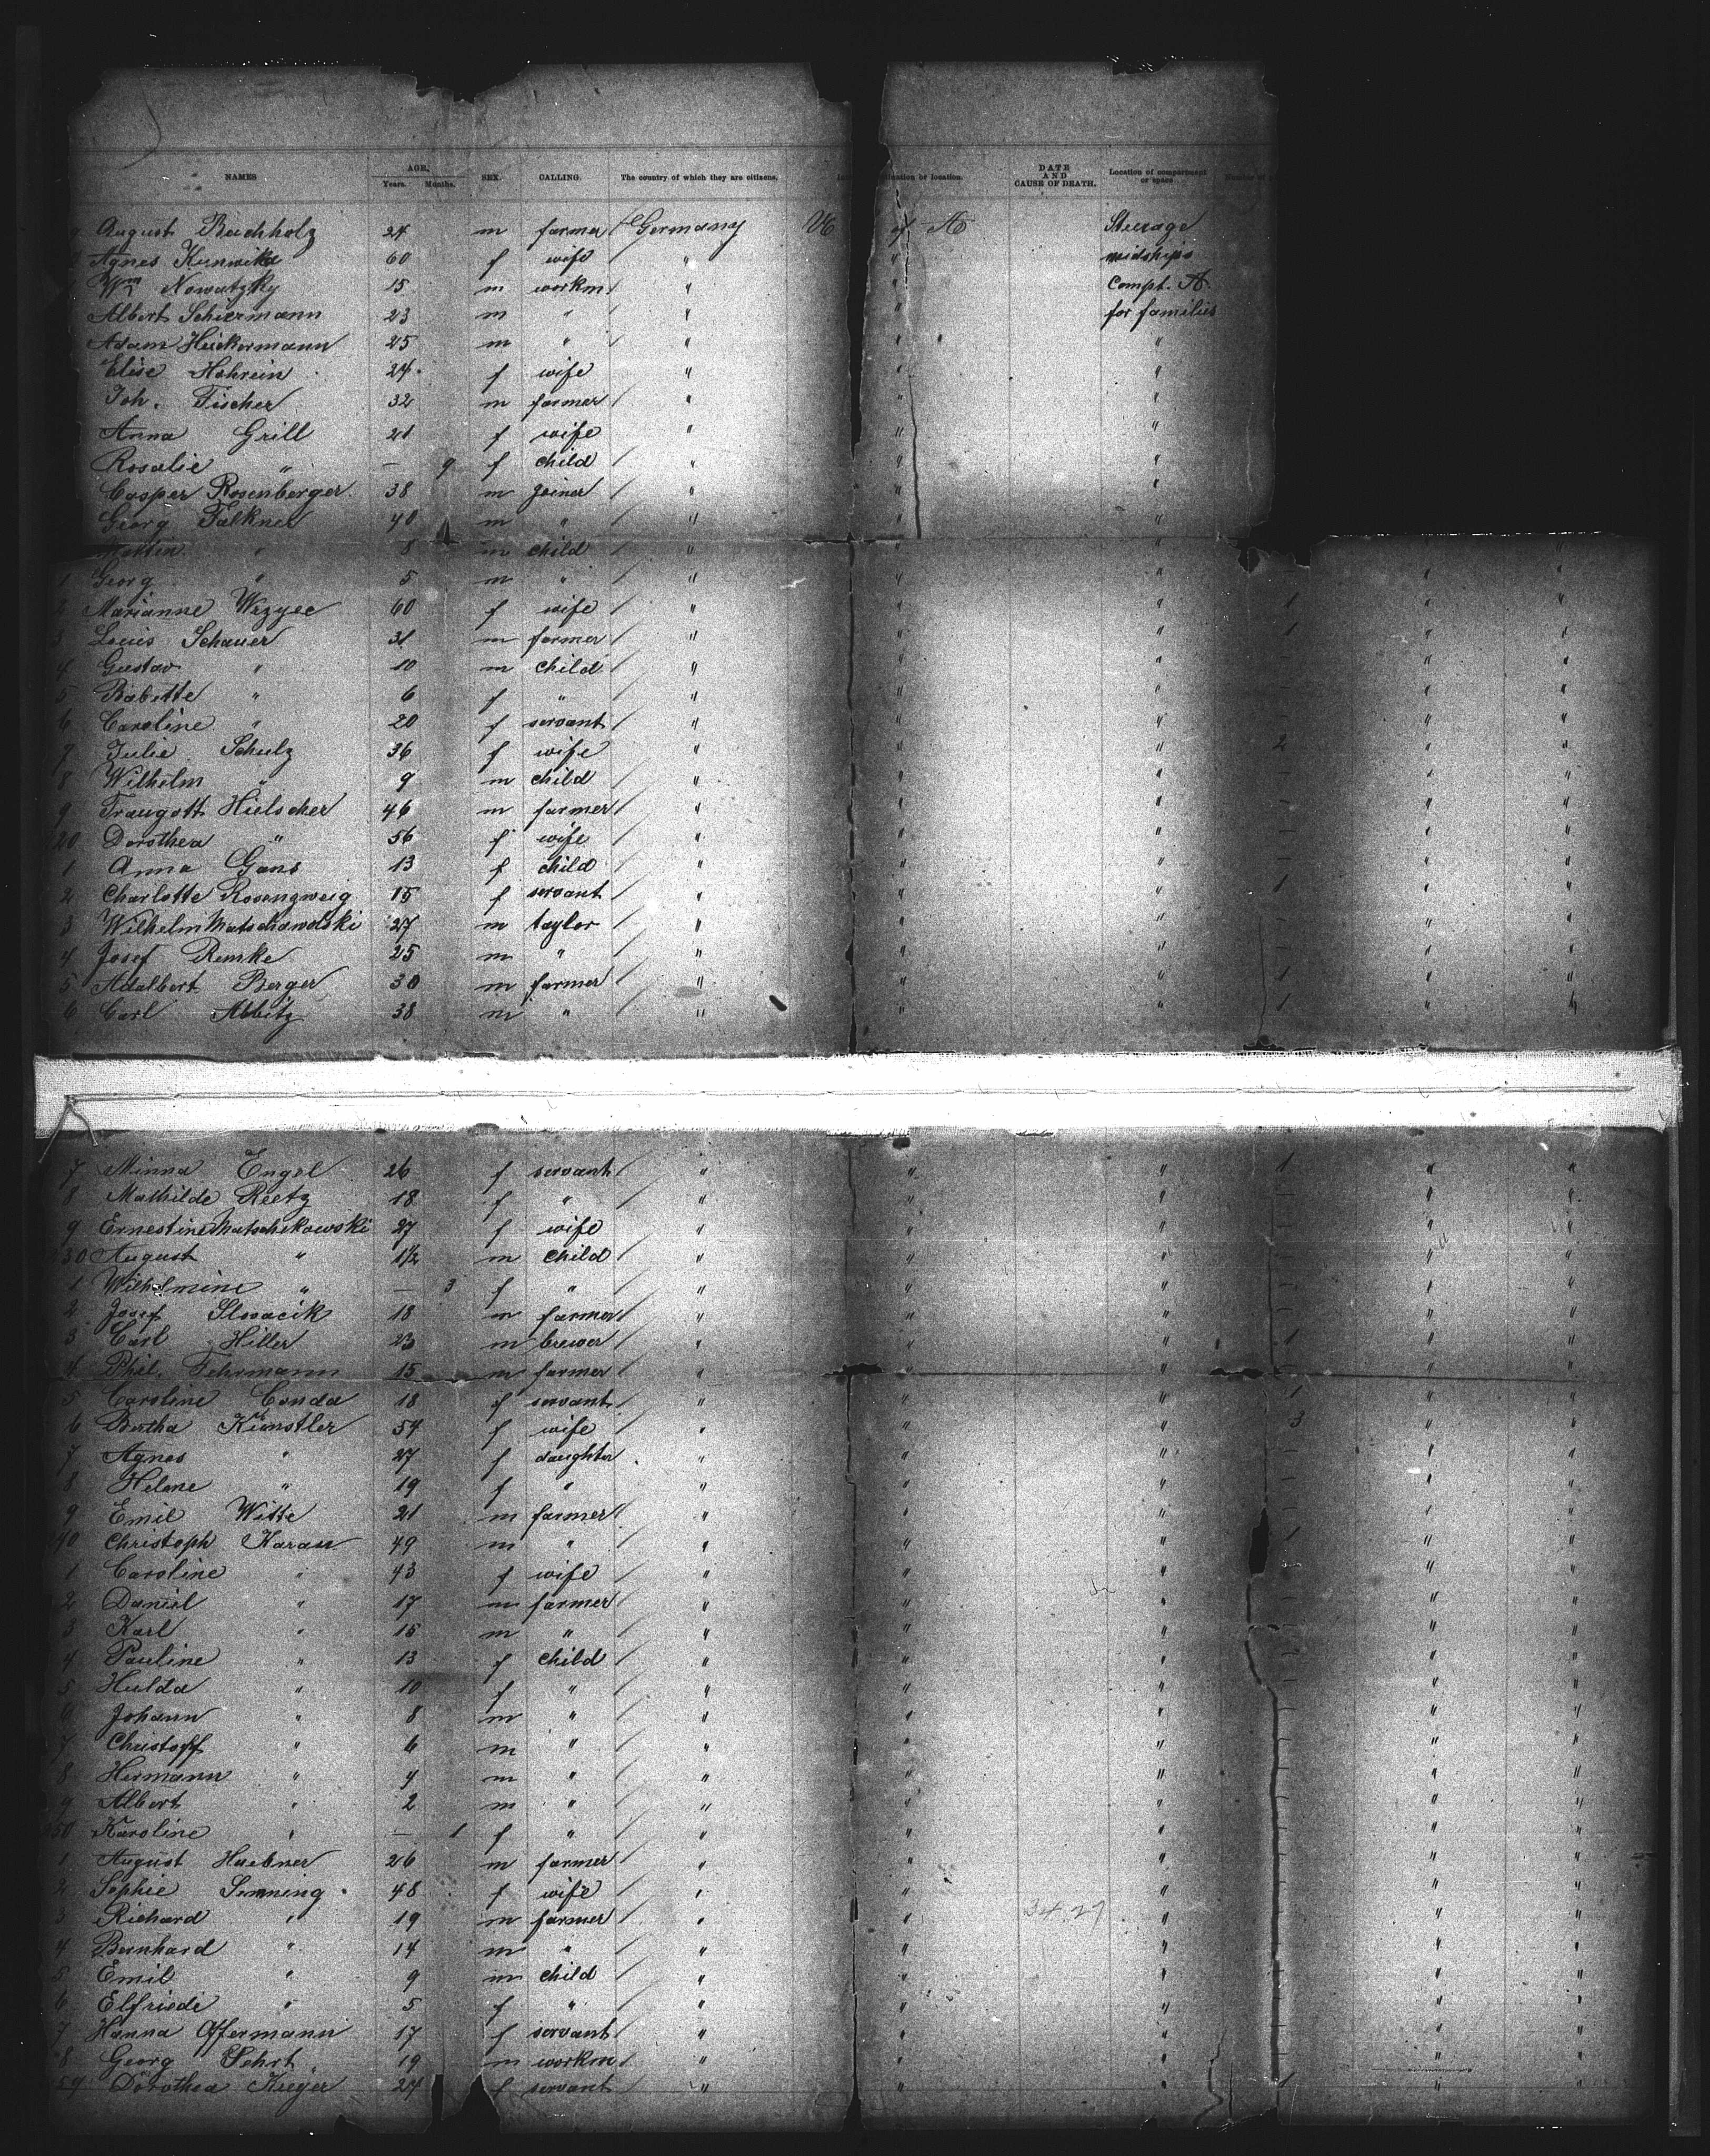 NAMES AGE. Years. Months. SEX. CALLING. The country of which they are citizens. location. DATE AND CAUSE OF DEATH. Location of compartment or space
August Buchholz 24 m farmer Germany Steerage
Agnes 60 f wife " " midships
Wm Nowatzky 15 m workm " " Compt. A
Albert Schiermann 23 m " " " for families
Adam Huckermann 25 m " " " "
Elise Hohrein 24 f wife " " "
Joh. Fischer 32 m farmer " " "
Anna Grill 21 f wife " " "
Rosalie " — 9 f child " " "
Casper Rosenberger 38 m joiner " " "
Georg Falkner 40 m " " " "
Martin " 8 m child " " "
1 Georg " 5 m " " " " " "
2 Marianne Wrzyec 60 f wife " " " 1 " "
3 Louis Schauer 31 m farmer " " " 1 " "
4 Gustav " 10 m child " " " - " "
5 Babette " 6 f " " " " - " "
6 Caroline " 20 f servant " " " - " "
7 Julie Schulz 36 f wife " " " 2 " "
8 Wilhelm " 9 m child " " " - " "
9 Traugott Hielscher 46 m farmer " " " - " "
20 Dorothea " 56 f wife " " " - " "
1 Anna Gans 13 f child " " " - " "
2 Charlotte Rosengweig 15 f servant " " " 1 " "
3 Wilhelm Matschowolski 27 m taylor " " " " "
4 Josef Remke 25 m " " " " - " "
5 Adalbert Berger 30 m farmer " " " 1 " "
6 Carl Abbitz 38 m " " " " 1 " "
7 Minna Engel 26 f servant " " " 1 " "
8 Mathilde Reetz 18 f " " " " - " "
9 Ernestine Matschikowski 27 f wife " " " - " "
30 August " 1½ m child " " " - " "
1 Wilhelmine " — 3 f " " " " - " "
2 Josef Slovacik 18 m farmer " " " - " "
3 Carl Hiller 23 m brewer " " " 1 " "
4 Phil. Fehrmann 15 m farmer " " " - " "
5 Caroline Conda 18 f servant " " " 1 " "
6 Bertha Künstler 54 f wife " " " 3 " "
7 Agnes " 27 f daughter " " " - " "
8 Helene " 19 f " " " " - " "
9 Emil Witte 21 m farmer " " " - " "
40 Christoph Karau 49 m " " " " 1 " "
1 Caroline " 43 f wife " " " - " "
2 Daniel " 17 m farmer " " " - " "
3 Karl " 15 m " " " " - " "
4 Pauline " 13 f child " " " - " "
5 Hulda " 10 f " " " " - " "
6 Johann " 8 m " " " " - " "
7 Christoff " 6 m " " " " - " "
8 Hermann " 4 m " " " " - " "
9 Albert " 2 m " " " " - " "
50 Karoline " — 1 f " " " " - " "
1 August Huebner 26 m farmer " " " - " "
2 Sophie Semning 48 f wife " " " - " "
3 Richard " 19 m farmer " " 34.27 " - " "
4 Bernhard " 14 m " " " " - " "
5 Emil " 9 m child " " " - " "
6 Elfriede " 5 f " " " " - " "
7 Hanna Offermann 17 f servant " " " - " "
8 Georg Sehrt 19 m workm " " " - "
59 Dorothea Krieger 24 f servant " " " 1 " "